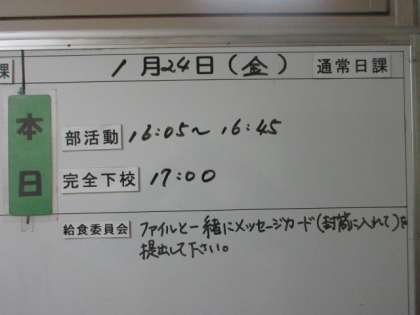 課 1月24日(金) 通常日課
本日
部活動 16:05〜16:45
完全下校 17:00
給食委員会 ファイルと一緒にメッセージカード(封筒に入れて)を
提出して下さい。